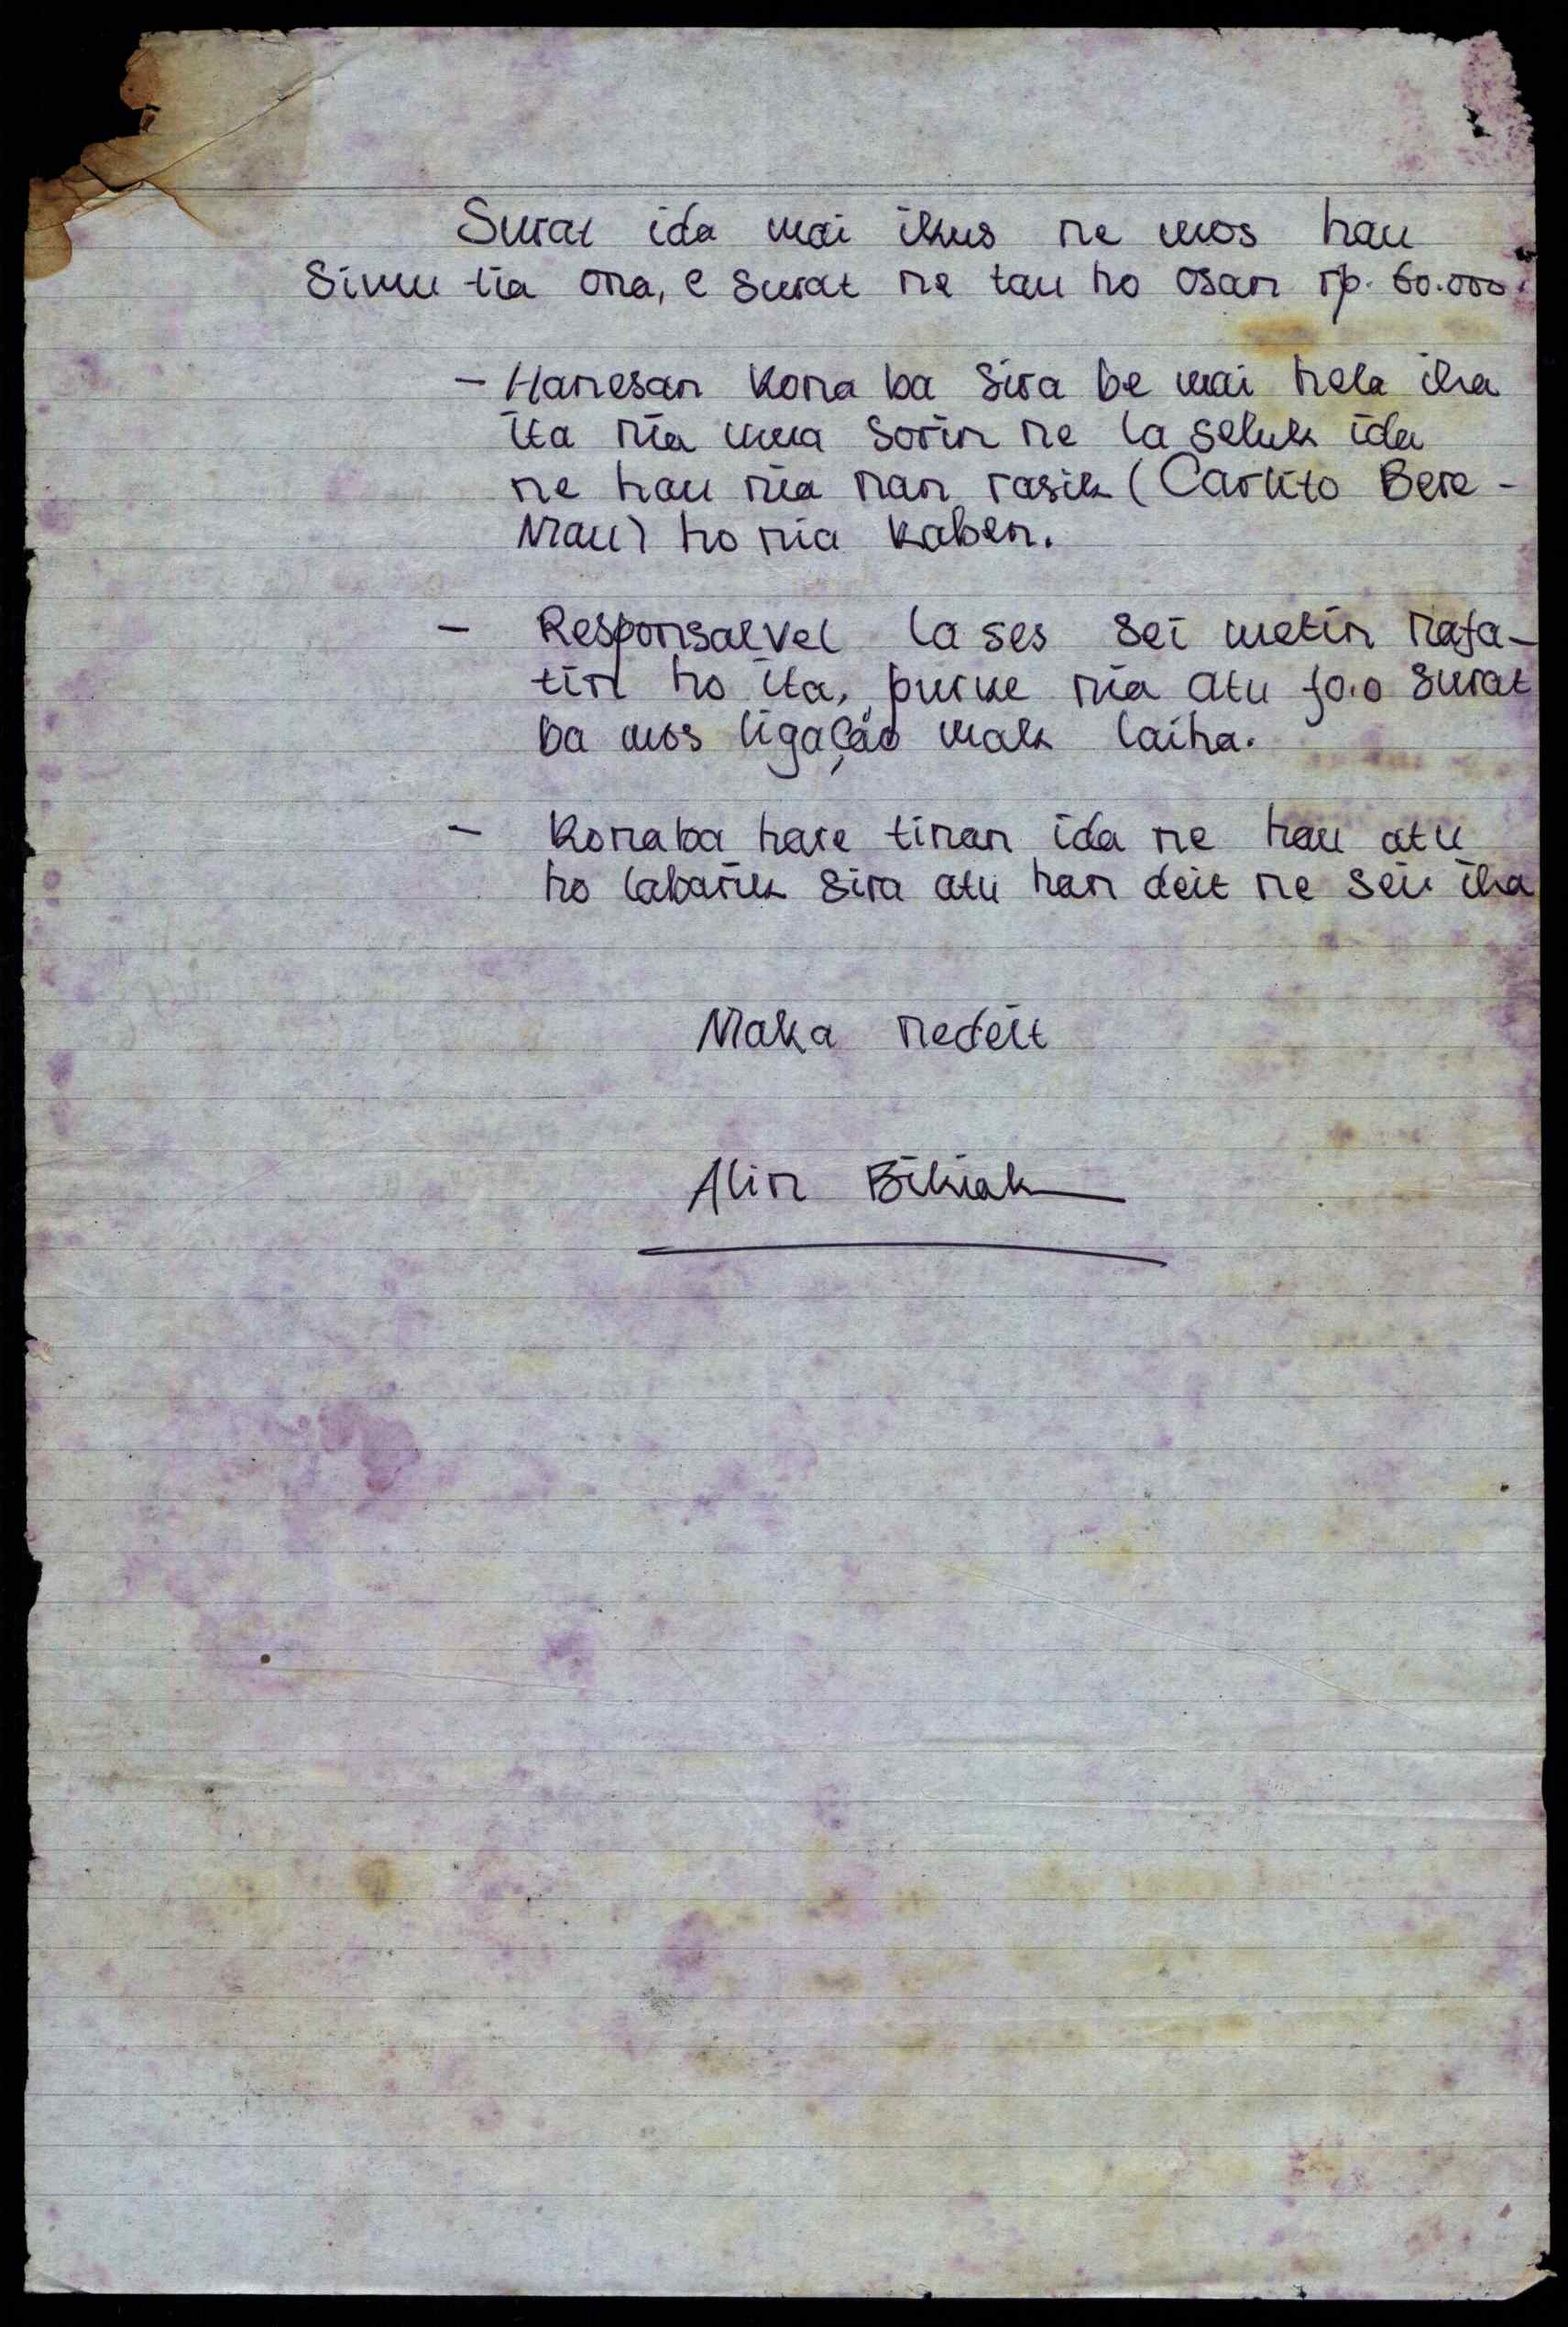 Surat ida mai ikus ne mos hau
Simu tia ona, e surat ne tau ho osan rp. 60.000.
- Hanesan kona ba sira be mai hela iha
ita nia uma sorin ne la seluk ida
ne hau nia nan rasik (Carlito Bere -
Mau) ho nia kaben.
- Responsalvel la ses sei metin nafa-
tin ho ita, purke nia atu fo.o surat
ba mos ligação mak laiha.
- Konaba hare tinan ida ne hau atu
ho labarik sira atu han deit ne sei iha
Maka nedeit
Alin Bikiak